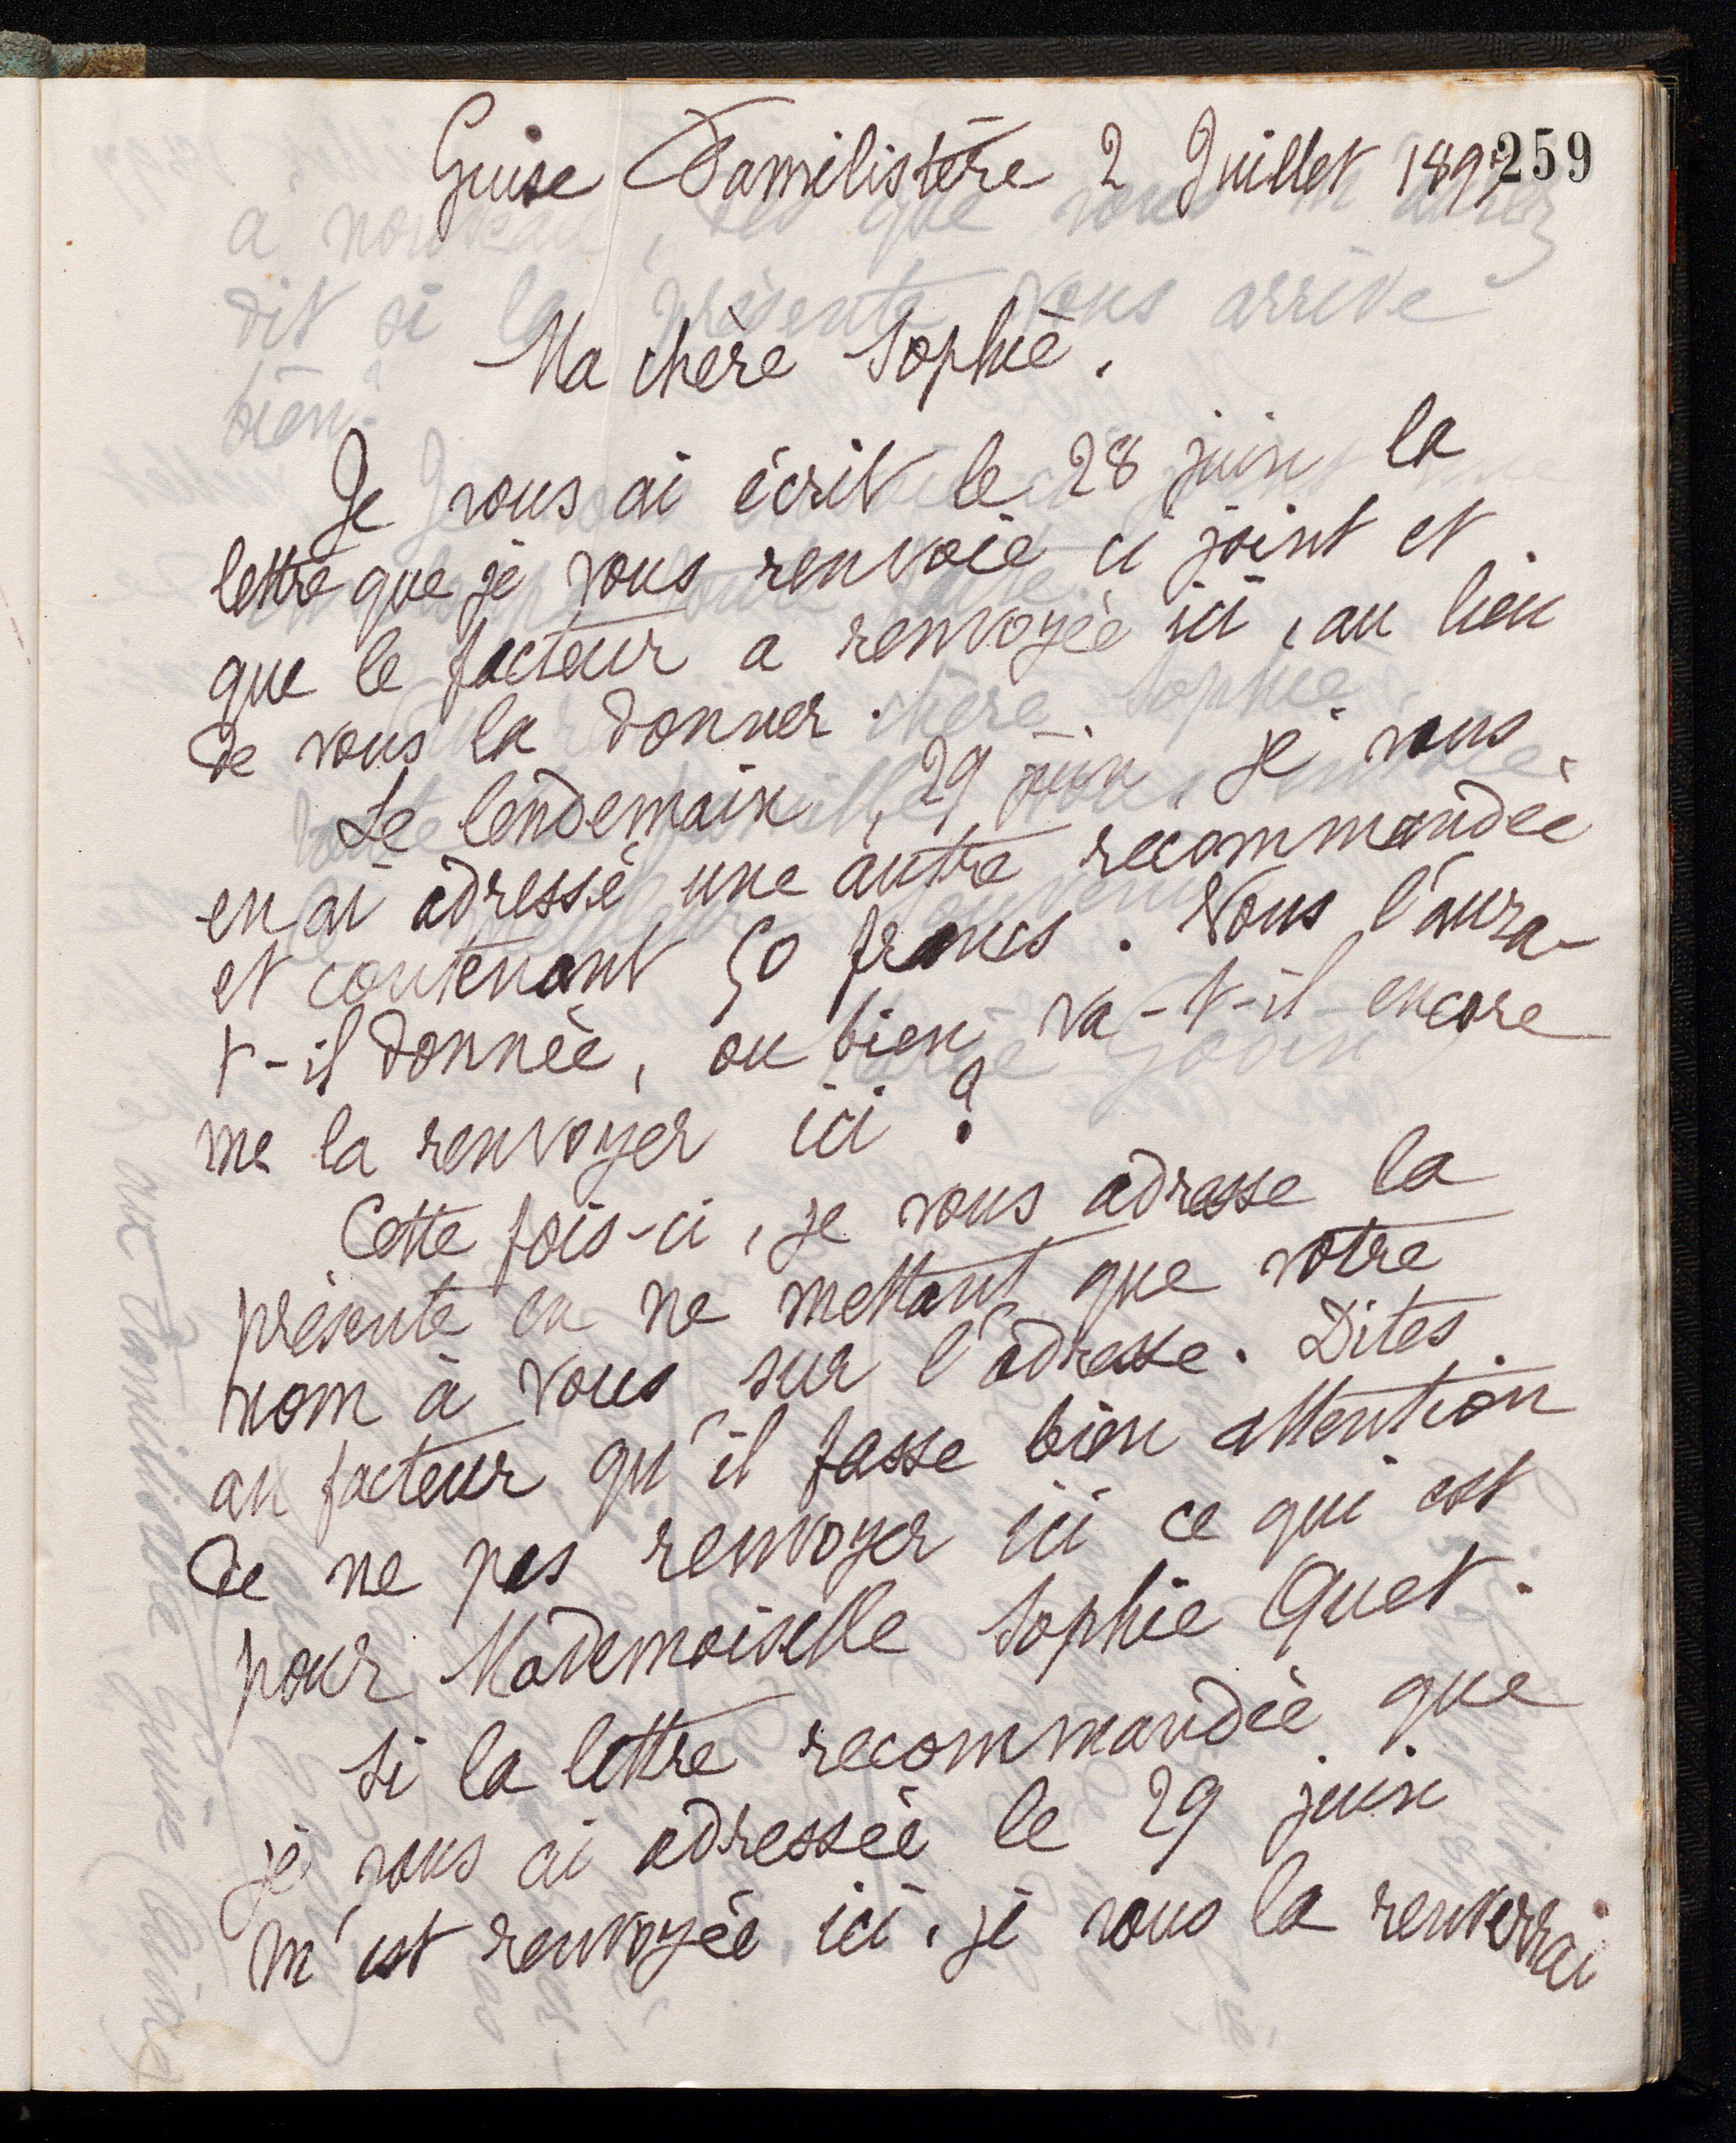 259
Guise Familistère 2 Juillet 1897
Ma chère Sophie,
Je vous ai écrit le 28 juin la
lettre que je vous renvoie ci joint et
que le facteur a renvoyée ici, au lieu
de vous la donner.
Le lendemain, 29 juin, je vous
en ai adressé une autre recommandée
et contenant 50 francs. Vous l'aura-
t-il donnée, ou bien va-t-il encore
me la renvoyer ici ?
Cette fois-ci, je vous adresse la
présente en ne mettant que votre
nom à vous sur l'adresse. Dites
au facteur qu'il fasse bien attention
de ne pas renvoyer ici ce qui est
pour Mademoiselle Sophie Quet.
Si la lettre recommandée que
je vous ai adressée le 29 juin
m'est renvoyée ici, je vous la renverrai